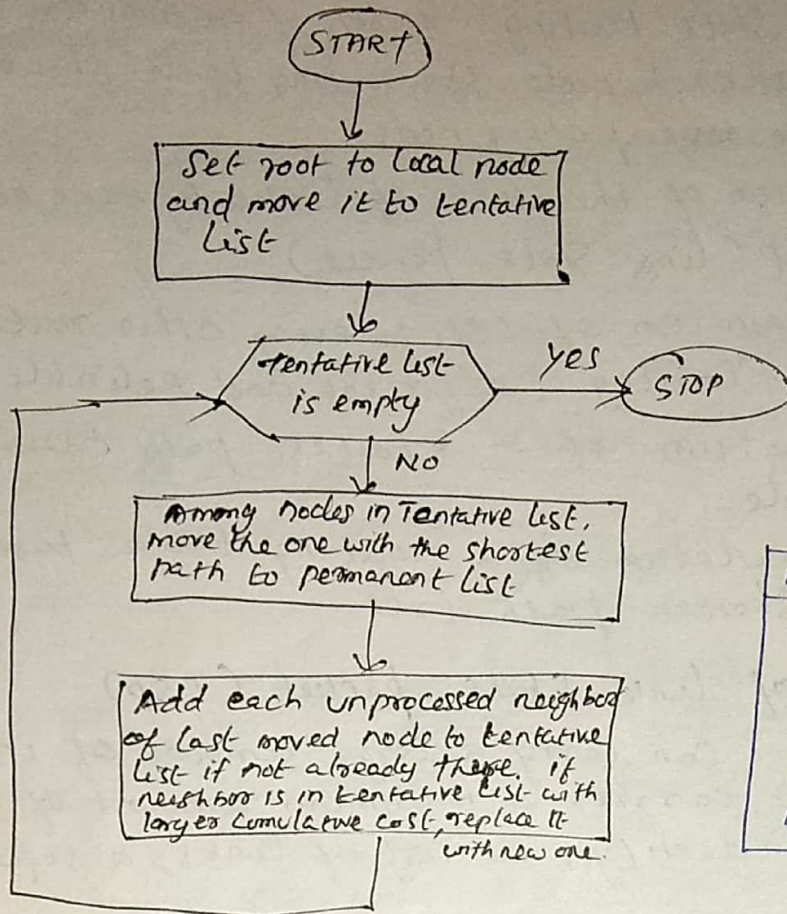 START
Set root to local node
and move it to tentative
List
tentative list
is empty
yes
STOP
NO
Among nodes in Tentative list,
move the one with the shortest
path to permanent list
Add each unprocessed neighbor
of last moved node to tentative
list if not already there. if
neighbor is in tentative list with
larger cumulative cost, replace it
with new one.